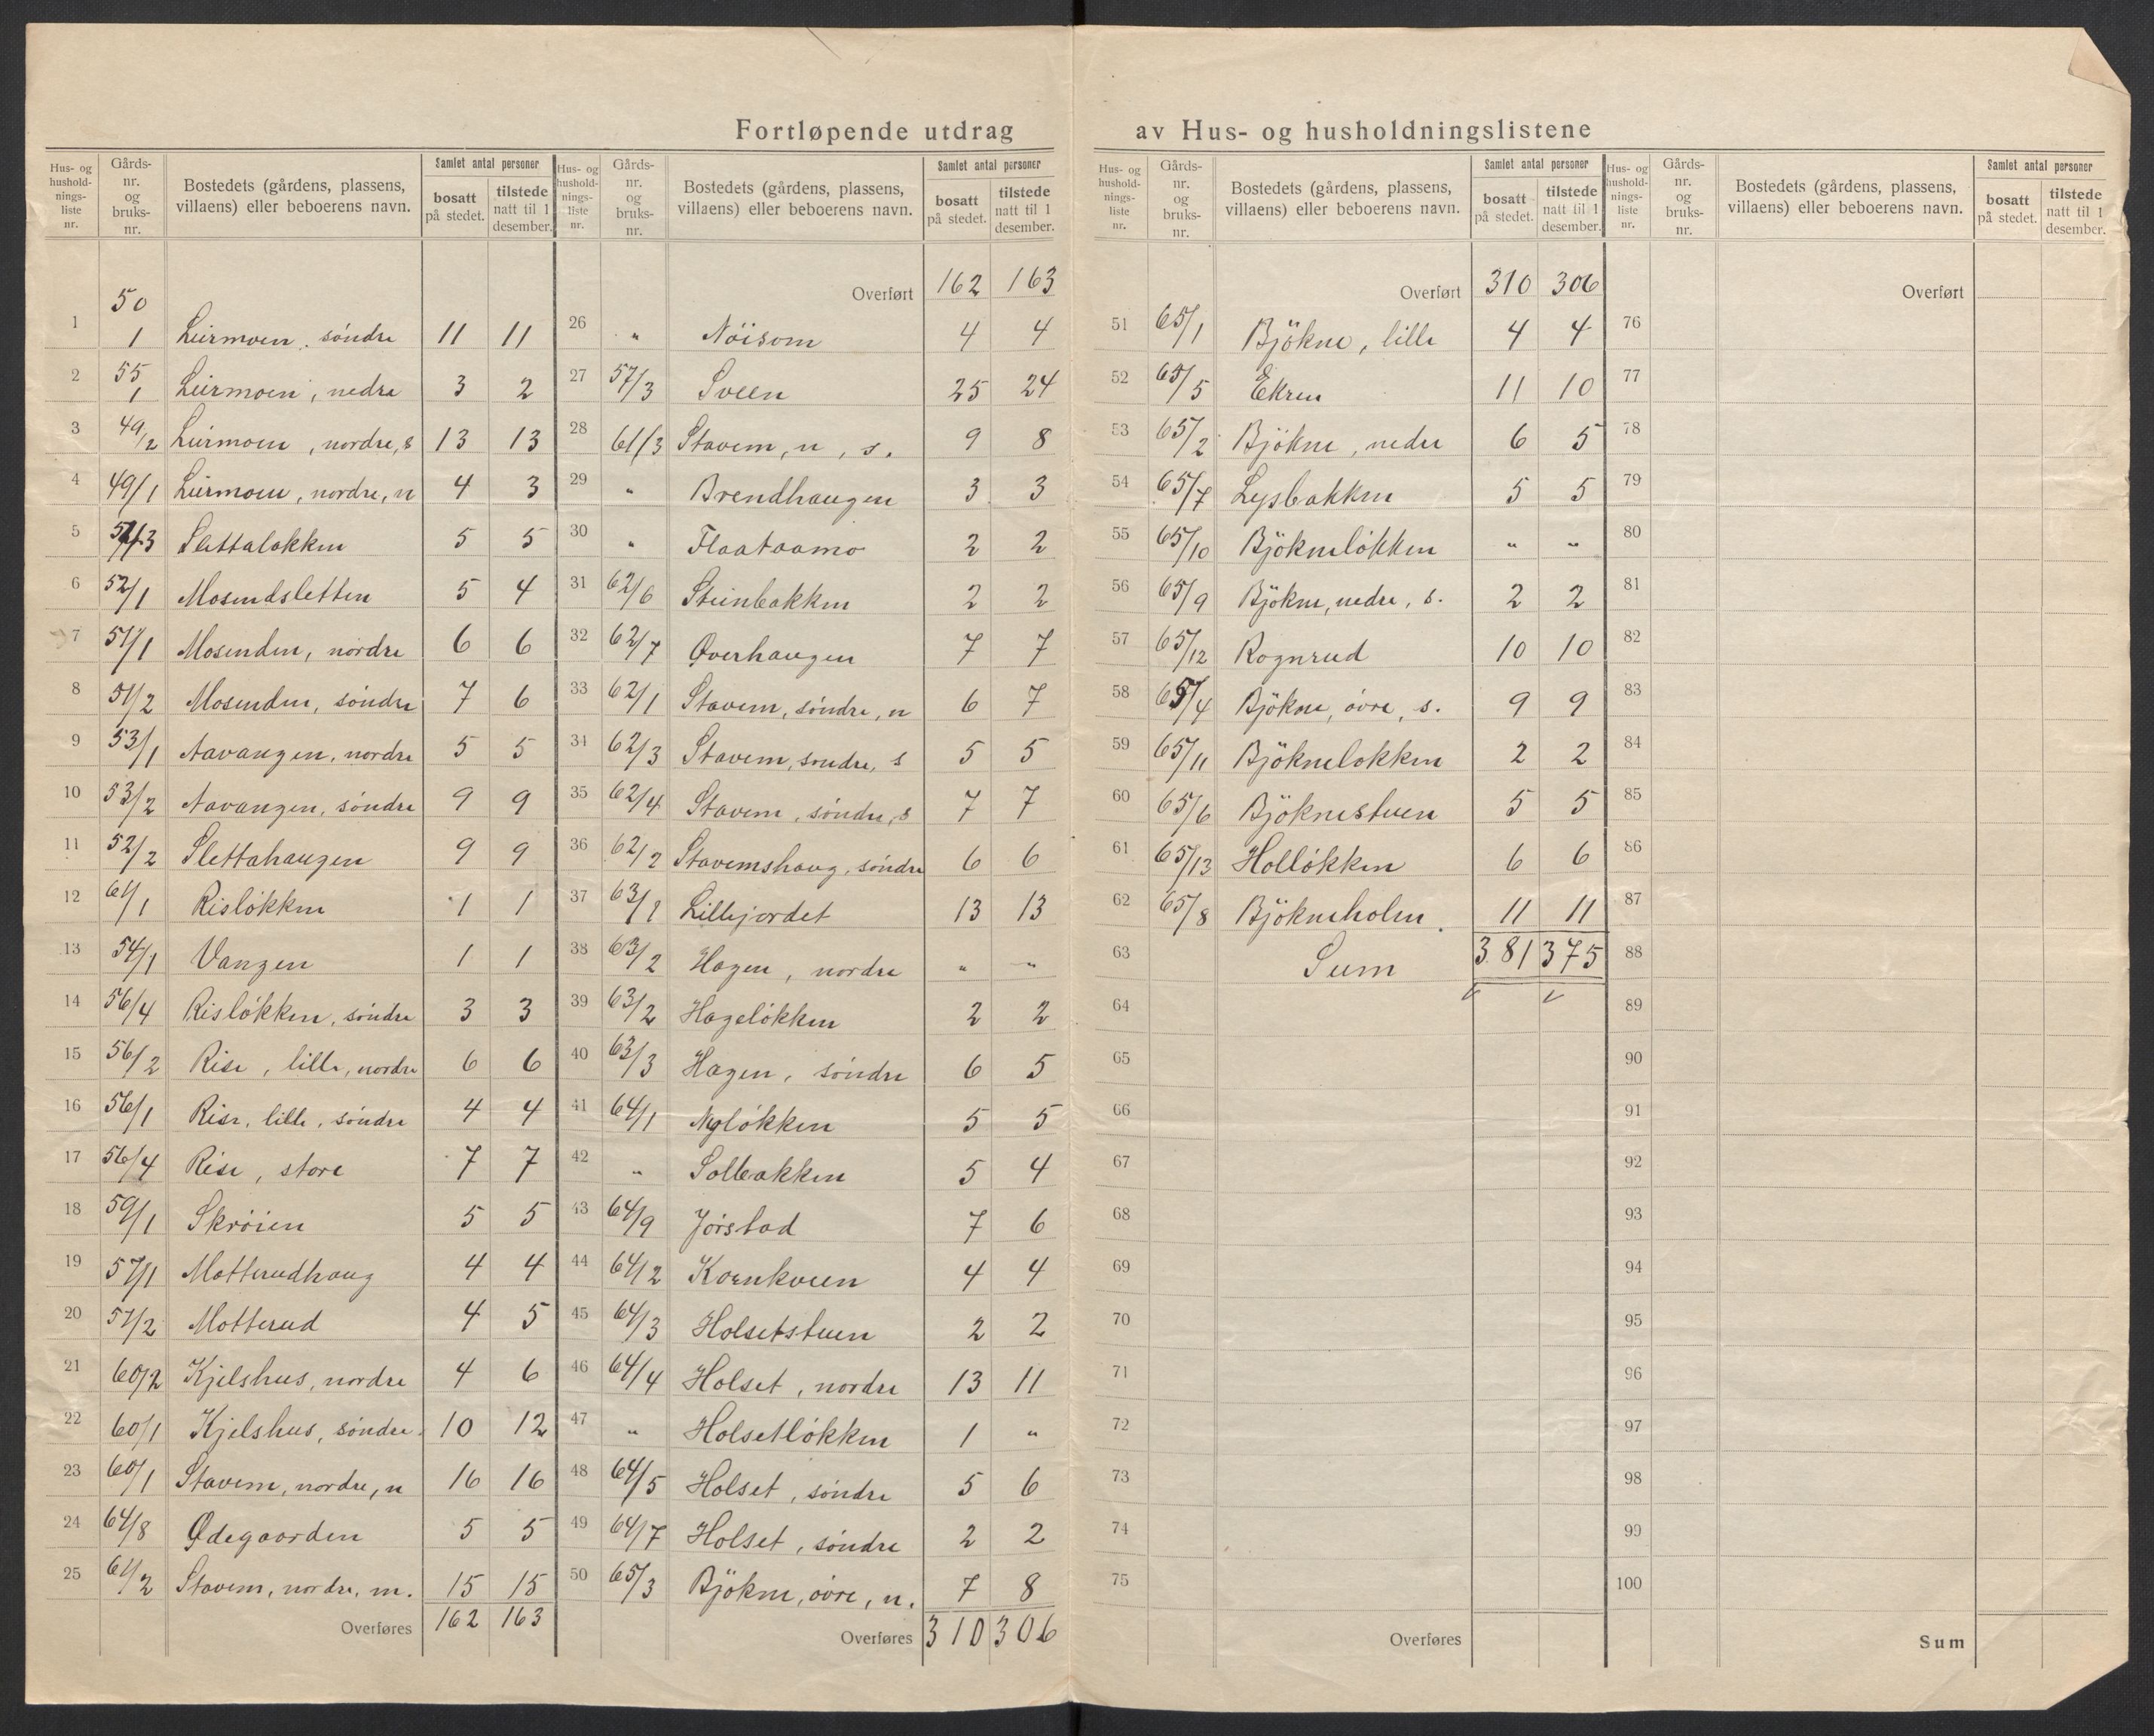 Fortløpende utdrag av Hus- og husholdningslistene
Hus- og hushold-nings-liste nr. | Gårds-nr. og bruks-nr. | Bostedets (gårdens, plassens, villaens) eller beboerens navn. | Samlet antal personer | bosatt på stedet. | tilstede natt til 1 desember.
1 50/1 Leirmoen, söndre 11 11
2 55/1 Leirmoen, nedre 3 2
3 49/2 Leirmoen, nordre, s 13 13
4 49/1 Leirmoen, nordre, n 4 3
5 Slettaløkken 5 5
6 52/1 Mosendsletten 5 4
7 51/1 Mosenden, nordre 6 6
8 51/2 Mosenden, söndre 7 6
9 53/1 Aavangen, nordre 5 5
10 53/2 Aavangen, söndre 9 9
11 52/2 Slettahaugen 9 9
12 61/1 Rislökken 1 1
13 54/1 Vangen 1 1
14 56/4 Rislökken, söndre 3 3
15 56/2 Rise, lille, nordre 6 6
16 56/1 Rise, lille, söndre 4 4
17 56/4 Rise, store 7 7
18 59/1 Skröien 5 5
19 57/1 Motterudhaug 4 4
20 57/2 Motterud 4 5
21 60/2 Kjelshus, nordre 4 6
22 60/1 Kjelshus, söndre 10 12
23 60/1 Stavem, nordre, n 16 16
24 64/8 Ødegaarden 5 5
25 61/2 Stavem, nordre, m. 15 15
Overføres 162 163
Hus- og hushold-nings-liste nr. | Gårds-nr. og bruks-nr. | Bostedets (gårdens, plassens, villaens) eller beboerens navn. | Samlet antal personer | bosatt på stedet. | tilstede natt til 1 desember.
Overført 162 163
26 " Nöisom 4 4
27 57/3 Sveen 25 24
28 61/3 Stavem, n, s. 9 8
29 " Brendhaugen 3 3
30 " Flaataamo 2 2
31 62/6 Steinbakken 2 2
32 62/7 Øverhaugen 7 7
33 62/1 Stavem, söndre, n 6 7
34 62/3 Stavem, söndre, s 5 5
35 62/4 Stavem, söndre, s 7 7
36 62/2 Stavemshaug, söndre 6 6
37 63/1 Lillejordet 13 13
38 63/2 Hagen, nordre " "
39 63/2 Hagelökken 2 2
40 63/3 Hagen, söndre 6 5
41 64/1 Nylökken 5 5
42 " Solbakken 5 4
43 64/9 Jörstad 7 6
44 64/2 Kornkveen 4 4
45 64/3 Holsetstuen 2 2
46 64/4 Holset, nordre 13 11
47 " Holsetlökken 1 "
48 64/5 Holset, söndre 5 6
49 64/7 Holset, söndre 2 2
50 65/3 Bjökne, övre, n. 7 8
Overføres 310 306
Hus- og hushold-nings-liste nr. | Gårds-nr. og bruks-nr. | Bostedets (gårdens, plassens, villaens) eller beboerens navn. | Samlet antal personer | bosatt på stedet. | tilstede natt til 1 desember.
Overført 310 306
51 65/1 Bjökne, lille 4 4
52 65/5 Ekren 11 10
53 65/2 Bjökne, nedre 6 5
54 65/7 Lysbakken 5 5
55 65/10 Bjöknelökken " "
56 65/9 Bjökne, nedre, s. 2 2
57 65/12 Rognrud 10 10
58 65/4 Bjökne, övre, s. 9 9
59 65/11 Bjöknelökken 2 2
60 65/6 Bjöknestuen 5 5
61 65/13 Hollökken 6 6
62 65/8 Bjökneholm 11 11
63 Sum 381 375
64
65
66
67
68
69
70
71
72
73
74
75
Overføres
Hus- og hushold-nings-liste nr. | Gårds-nr. og bruks-nr. | Bostedets (gårdens, plassens, villaens) eller beboerens navn. | Samlet antal personer | bosatt på stedet. | tilstede natt til 1 desember.
Overført
76
77
78
79
80
81
82
83
84
85
86
87
88
89
90
91
92
93
94
95
96
97
98
99
100
Sum